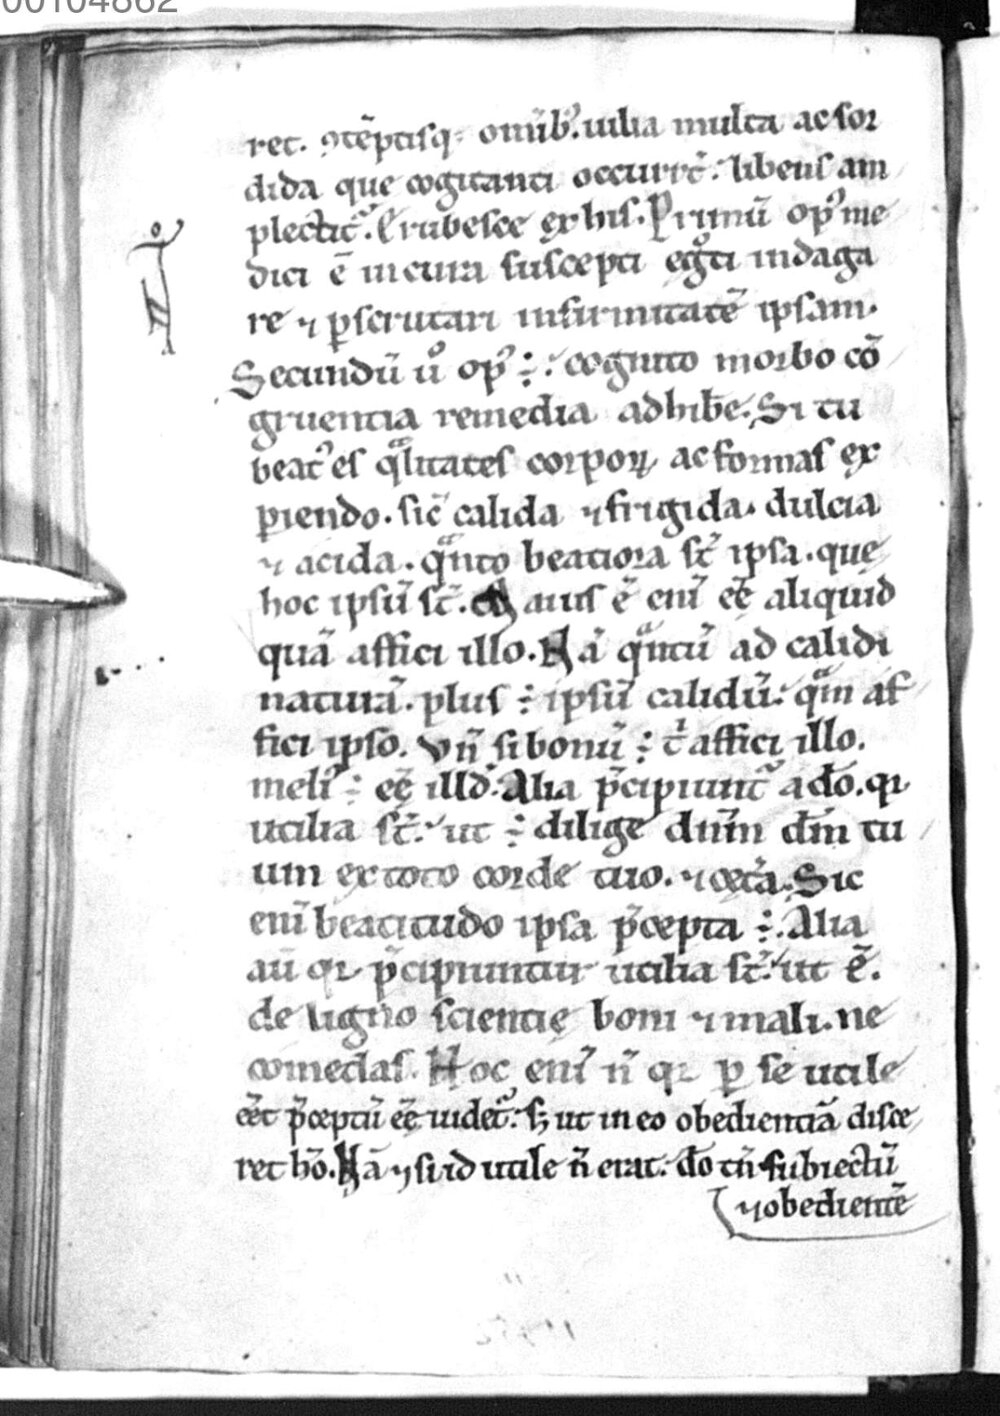 00104862
ret. ꝯtēptisq; omīb᷒. uilia multa ac sor
dida que cogitanti occurrt̄. libens am
plectit᷑. Erubesce ex his. Primū op᷒ me
dici ē in cura suscepti egͦti indaga
re ⁊ ꝑscrutari infirmitatē ipsam.
Secundū ūo op᷒ ÷. cognito morbo cō
gruentia remedia adhibe. Si tu
beat᷒ es qͣlitates corpoꝝ ac formas ex
ꝑiendo. sic̄ calida ⁊ frigida. dulcia
⁊ acida. qͣnto beatiora st̄ ipsa. que
hoc ipsū st̄. auus ē enī eē aliquid
quā affici illo. Nā qͣntū ad calidi
naturā. plus ÷ ipsū calidū. qͣm af
fici ipso. Vn̄ si bonū ÷ tͥ affici illo.
meli᷒ ÷ eē illd̄. Alia p̄cipiunt᷑ a dō. qꝛ
utilia st̄. ut ÷ dilige dnm̄ dm̄ tu
um ex toto corde tuo. ⁊ cet̄a. Sic
enī beatitudo ipsa p̄cepta ÷. Alia
aū qꝛ p̄cipiuntur utilia st̄. ut ē.
de ligno scientię boni ⁊ mali. ne
comedas. Hoc enī n̄ qꝛ ꝑ se utile
eēt p̄ceptū eē uidet᷑. sꝫ ut in eo obedientiā disce
ret hō. Nā ⁊ si id utile n̄ erat. dō tn̄ subiectū
⁊ obedientē